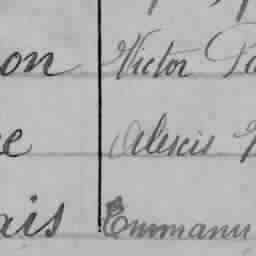 on Victor
e Alexis
ais Emmanu